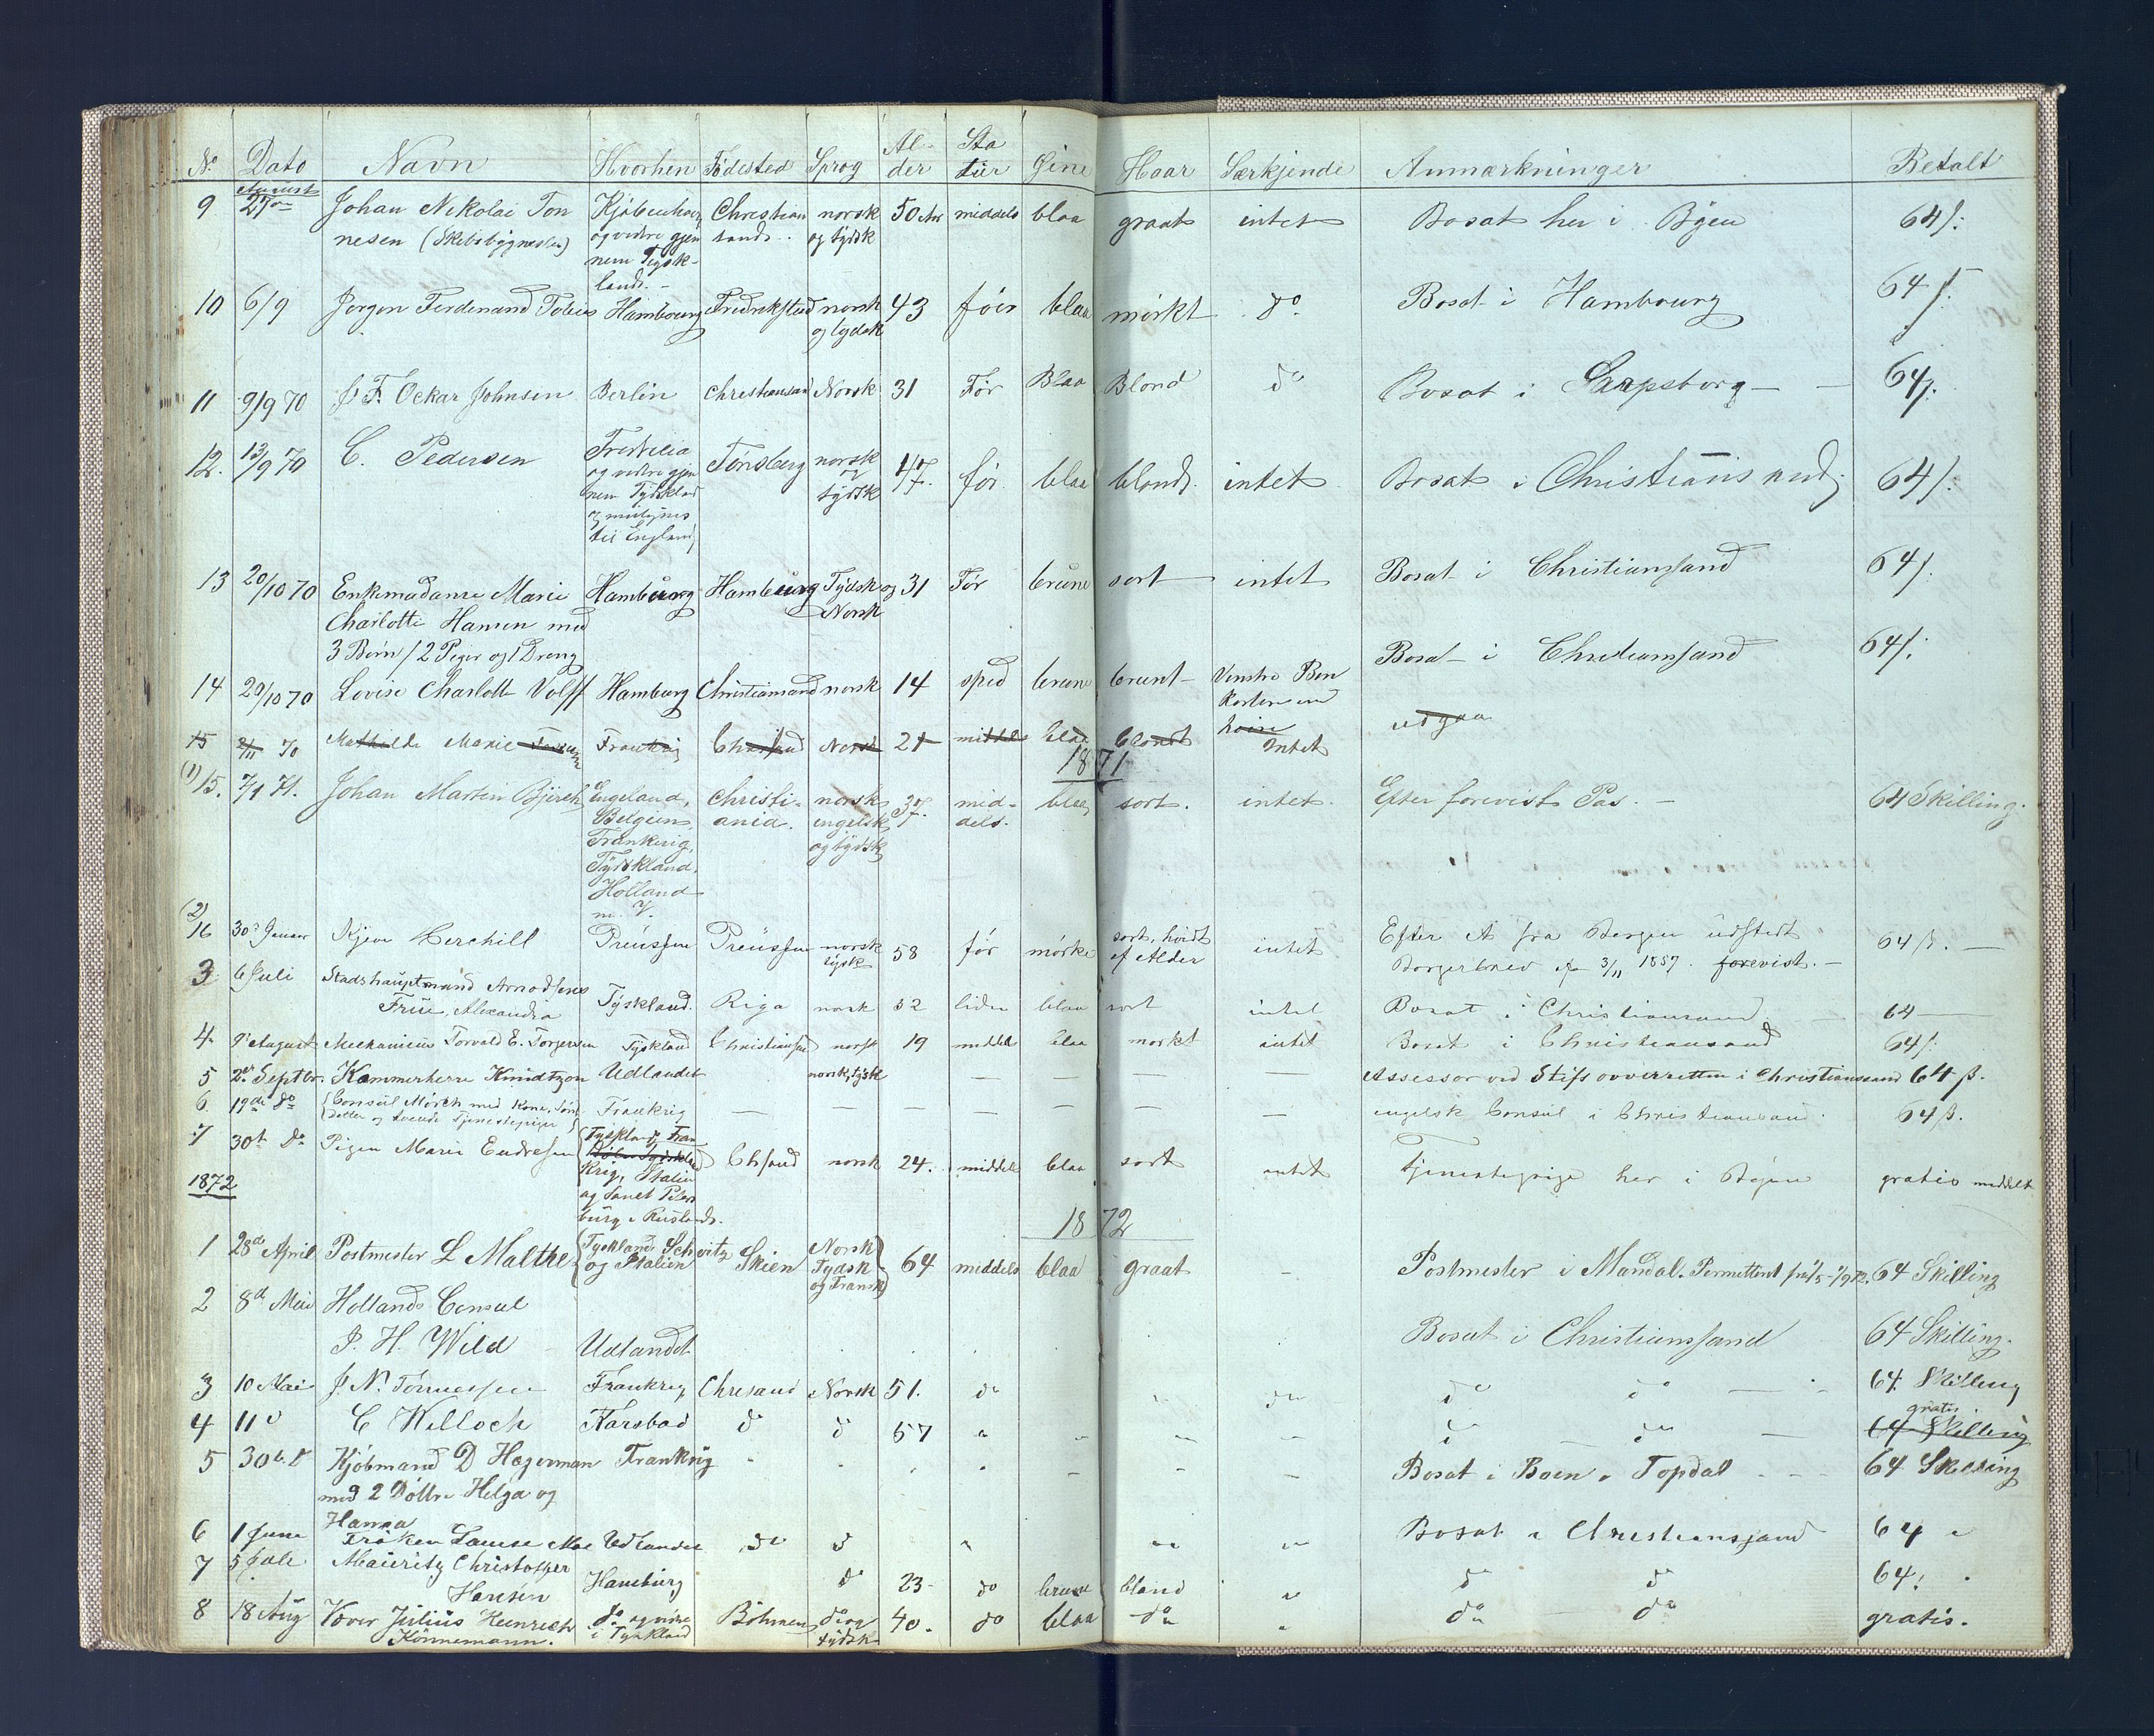 No Dato Navn Hvorhen Fødested Sprog Al-der Sta tür Øine Haar Særkjende Anmærkninger Betalt
August
9 27de Johan Nikolai Ton Kjøbenhavn Christian norsk 50 Aar middels blaa graat intet Bosat her i Byen 64 ſ:
nesen (Skibsbygmester) og videre gjen sands og tydsk
nem Tydsk-
land. -
10 6/9 Jørgen Ferdinand Tobias Hambourg Fredrikstad norsk 43 føer blaa mørkt do. Bosat i Hambourg 64 ſ:
og tydsk
11 9/9 70 J. F. Ockar Johnsen Berlin Christiansand Norsk 31 Før Blaa Blond do Bosat i Sarpsborg - 64 ſ:
12. 13/9 70 C. Pedersen Tønsberg norsk 47. før blaa blond. intet Bosat i Christians 64 ſ:
og videre gjen og
nem Tydskland tydsk
til England
13 20/10 70 Enkemadame Marie Hambourg Hambourg Tydsk og 31 Før brune sort intet Bosat i Christiansand 64 ſ:
Charlotte Hansen med Norsk
3 Børn / 2 Piger og 1 Dreng
14 20/10 70 Lovise Charlotte Volff Hamburg Christiansand norsk 14 sped brune brunt Venstre Ben Bosat i Christiansand 64 ſ:
høire
15 2/11 70 Mathilde Marie Frankrig Chrsand Norsk 21 middels blaa blondt Intet udgaa
1871
(1) 15. 7/1 71. Johan Martin Bjerch Engeland, Christi- norsk 37. mid- blaa sort. intet. Efter forevist Pas. - 64 Skilling.
Belgien, ania. engelsk dels.
Frankrig, og tydsk
Tydskland,
Holland
m. V.
(2)
16 30 Januar Preussen Preussen norsk 58 før mørke sort, hvidt intet Efter et fra Bergen udstedt 64 ß. -
tysk af Alder Borgerbrev af 3/11 1857. forevist. -
3 6 Juli Stadshauptmand Arnodsens
Frue, Alexandra Tyskland. Riga norsk 32 liden blaa sort intet Bosat i Christiansand 64 -
4. August Mechanicus Torvald E. Torgersen Tyskland Christiansand norsk 19 middel blaa mørkt intet Bosat i Christiansand 64 ſ:
5 2. Septbr. Kammerherre Knudtzon Udlandet norsk, tysk - - - - - Assessor ved Stifsovverretten i Christianssand 64 ß.
6. 19de do Consul Mørch med Kone, Søn, Frankrig - - - - - - - engelsk Consul i Christiansand. 64 ß.
Datter og Tjenestepiger
7 30t Do Pigen Marie Endresen Tyskland, Fran Chsand norsk 24. middels blaa sort intet Tjenestepige her i Byen gratis meddelt
krig, Italien
1872 og Sanct Peters
burg i Rusland.
1872
1 28de April Postmester L Malthe Tyskland Schveitz Skien Norsk 64 middels blaa graat - Postmester i Mandal. Permittert fra 1/5 - 1/9 72. 64 Skilling
og Italien Tydsk
og Fransk
2 8d Mai Hollands Consul
J. H. Wild Udlandet Bosat i Christianssand 64 Skilling.
3 10 Mai J. N. Tønnessen Frankrig Chrsand Norsk 51. do " do do do 64. Skilling
gratis
4 11 " C Willoch Karsbad do do 57 " " " " do do 64 Skilling
5 30 t. D Kjøbmand D Hegerman Frankrig " - - Bosat i Boen i Topdal - - 64 Skilling
med 2 Døttre Helga og
Hanna
6 1 Juni Frøken Louise Moe Udlandet do do " " " Bosat i Christianssand 64 "
7 5 Juli Mauritz Christoffer
Hansen Hamburg do 23 - do brune bland " do do 64: "
8 18 Aug Væver Julius Heinrich do og vidre Bøhmen do og 40. do blaa do " do do gratis.
Könnemann. i Tyskland tydsk